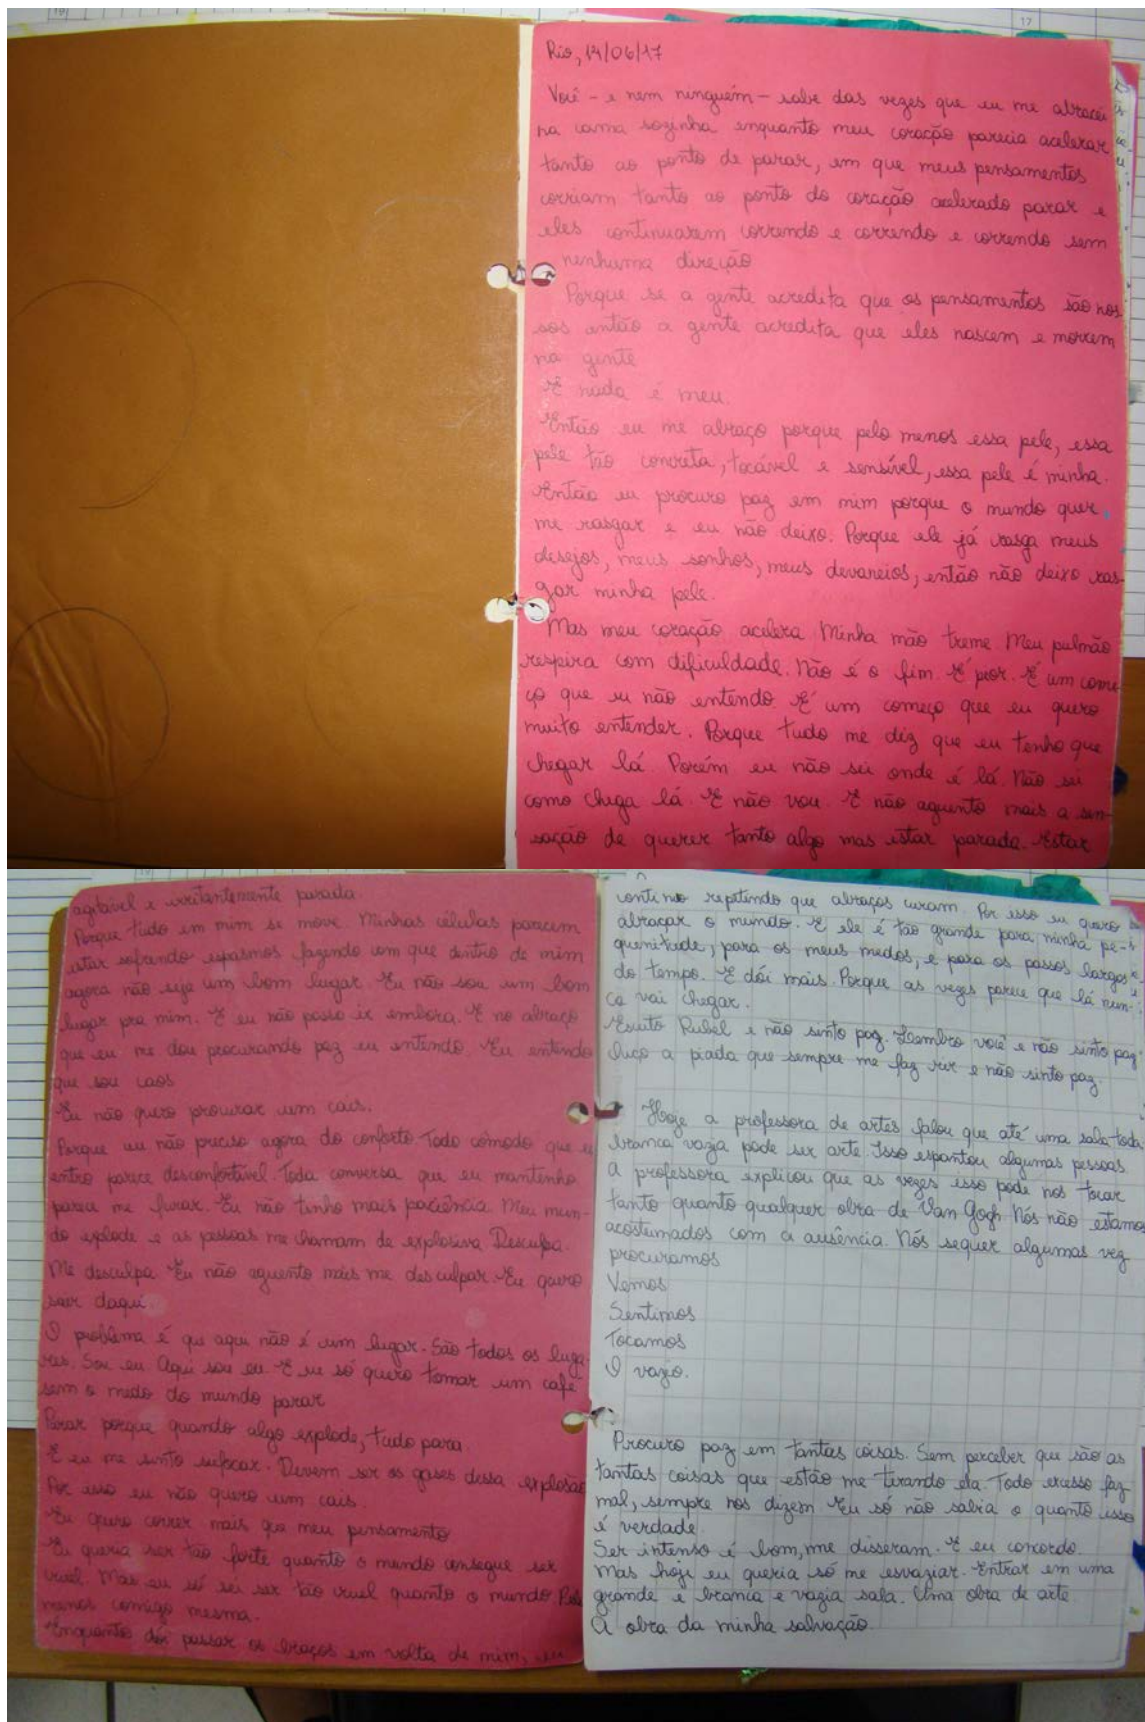 Rio, 14/06/17
Você - e nem ninguém - sabe das vezes que eu me abracei
na cama sozinha enquanto meu coração parecia acelerar
tanto ao ponto de parar, em que meus pensamentos
corriam tanto ao ponto do coração acelerado parar e
eles continuarem correndo e correndo e correndo sem
nenhuma direção
Porque se a gente acredita que os pensamentos são nos-
sos então a gente acredita que eles nascem e morrem
na gente
E nada é meu.
Então eu me abraço porque pelo menos essa pele, essa
pele tão concreta, tocável e sensível, essa pele é minha.
Então eu procuro paz em mim porque o mundo quer
me rasgar e eu não deixo. Porque ele já rasga meus
desejos, meus sonhos, meus devaneios, então não deixo ras-
gar minha pele.
Mas meu coração acelera Minha mão treme Meu pulmão
respira com dificuldade. Não é o fim. É pior. É um come
ço que eu não entendo. É um começo que eu quero
muito entender. Porque tudo me diz que eu tenho que
chegar lá. Porém eu não sei onde é lá. Não sei
como chega lá. E não vou. E não aguento mais a sen-
sação de querer tanto algo mas estar parada. Estar
agitável e irritantemente parada.
Porque tudo em mim se move. Minhas células parecem
estar sofrendo espasmos fazendo com que dentro de mim
agora não seja um bom lugar. Eu não sou um bom
lugar pra mim. E eu não posso ir embora. E no abraço
que eu me dou procurando paz eu entendo. Eu entendo
que sou caos
Eu não quero procurar um cais.
Porque eu não preciso agora do conforto. Todo cômodo que eu
entro parece desconfortável. Toda conversa que eu mantenho
parece me furar. Eu não tenho mais paciência. Meu mun-
do explode e as pessoas me chamam de explosiva. Desculpa.
Me desculpa. Eu não aguento mais me desculpar. Eu quero
sair daqui.
O problema é que aqui não é um lugar. São todos os luga-
res. Sou eu. Aqui sou eu. E eu só quero tomar um café
sem o medo do mundo parar
Parar porque quando algo explode, tudo para.
E eu me sinto sufocar. Devem ser os gases dessa explosão
Por isso eu não quero um cais.
Eu quero correr mais que meu pensamento
Eu queria ser tão forte quanto o mundo consegue ser
cruel. Mas eu só sei ser tão cruel quanto o mundo. Pelo
menos comigo mesma.
Enquanto dói passar os braços em volta de mim, eu
continuo repetindo que abraços curam. Por isso eu quero
abraçar o mundo. E ele é tão grande para minha pe-
quenitude, para os meus medos, e para os passos largos
do tempo. E dói mais. Porque as vezes parece que lá nun-
ca vai chegar.
Escuto Rubel e não sinto paz. Lembro você e não sinto paz.
Ouço a piada que sempre me faz rir e não sinto paz.
Hoje a professora de artes falou que até uma sala toda
branca vazia pode ser arte. Isso espantou algumas pessoas
A professora explicou que as vezes isso pode nos tocar
tanto quanto qualquer obra de Van Gogh. Nós não estamos
acostumados com a ausência. Nós sequer algumas vez
procuramos
Vemos
Sentimos
Tocamos
O vazio.
Procuro paz em tantas coisas. Sem perceber que são as
tantas coisas que estão me tirando ela. Todo excesso faz
mal, sempre nos dizem. Eu só não sabia o quanto isso
é verdade.
Ser intenso é bom, me disseram. E eu concordo.
Mas hoje eu queria só me esvaziar. Entrar em uma
grande e branca e vazia sala. Uma obra de arte
A obra da minha salvação.